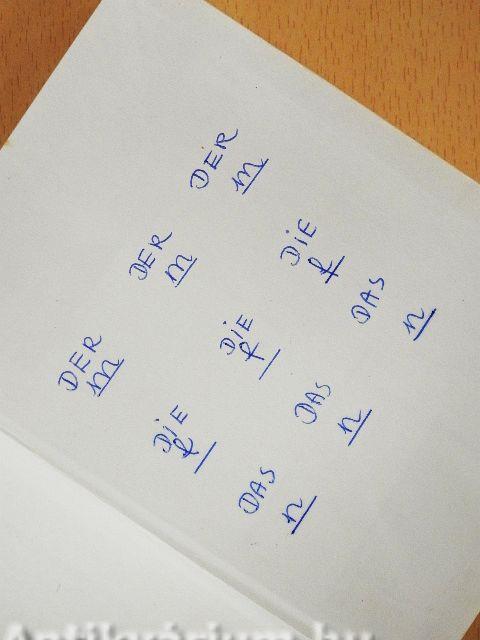 DER DER DER
m m m
DiE DiE DiE
f f f
DAS DAS DAS
n n n
Antikvárium.hu